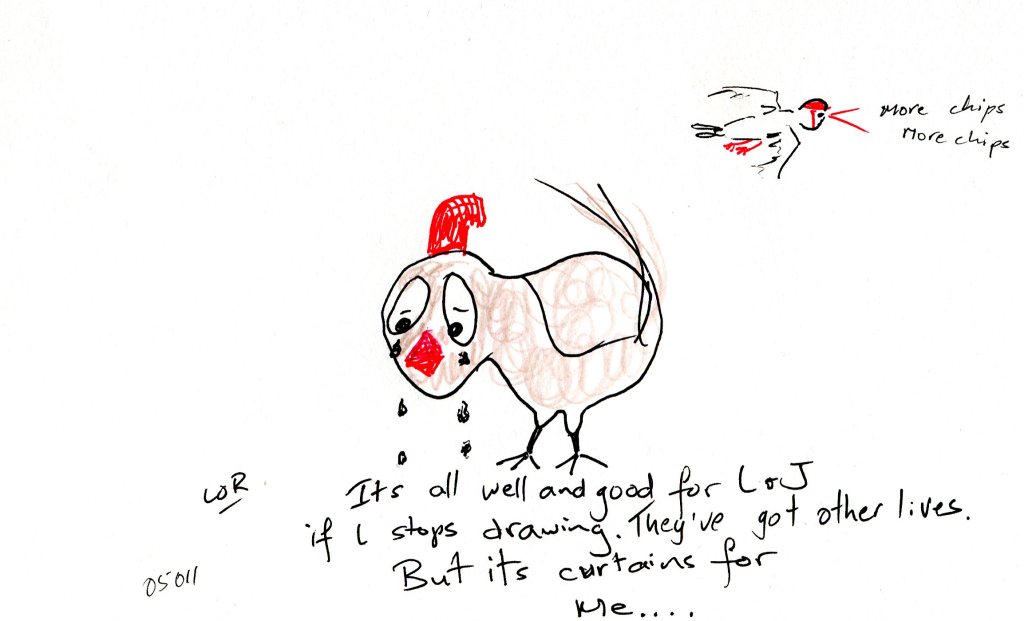 More chips
More chips
Its all well and good for L & J
if L stops drawing. They've got other lives.
But its curtains for
me....
LOR
05011